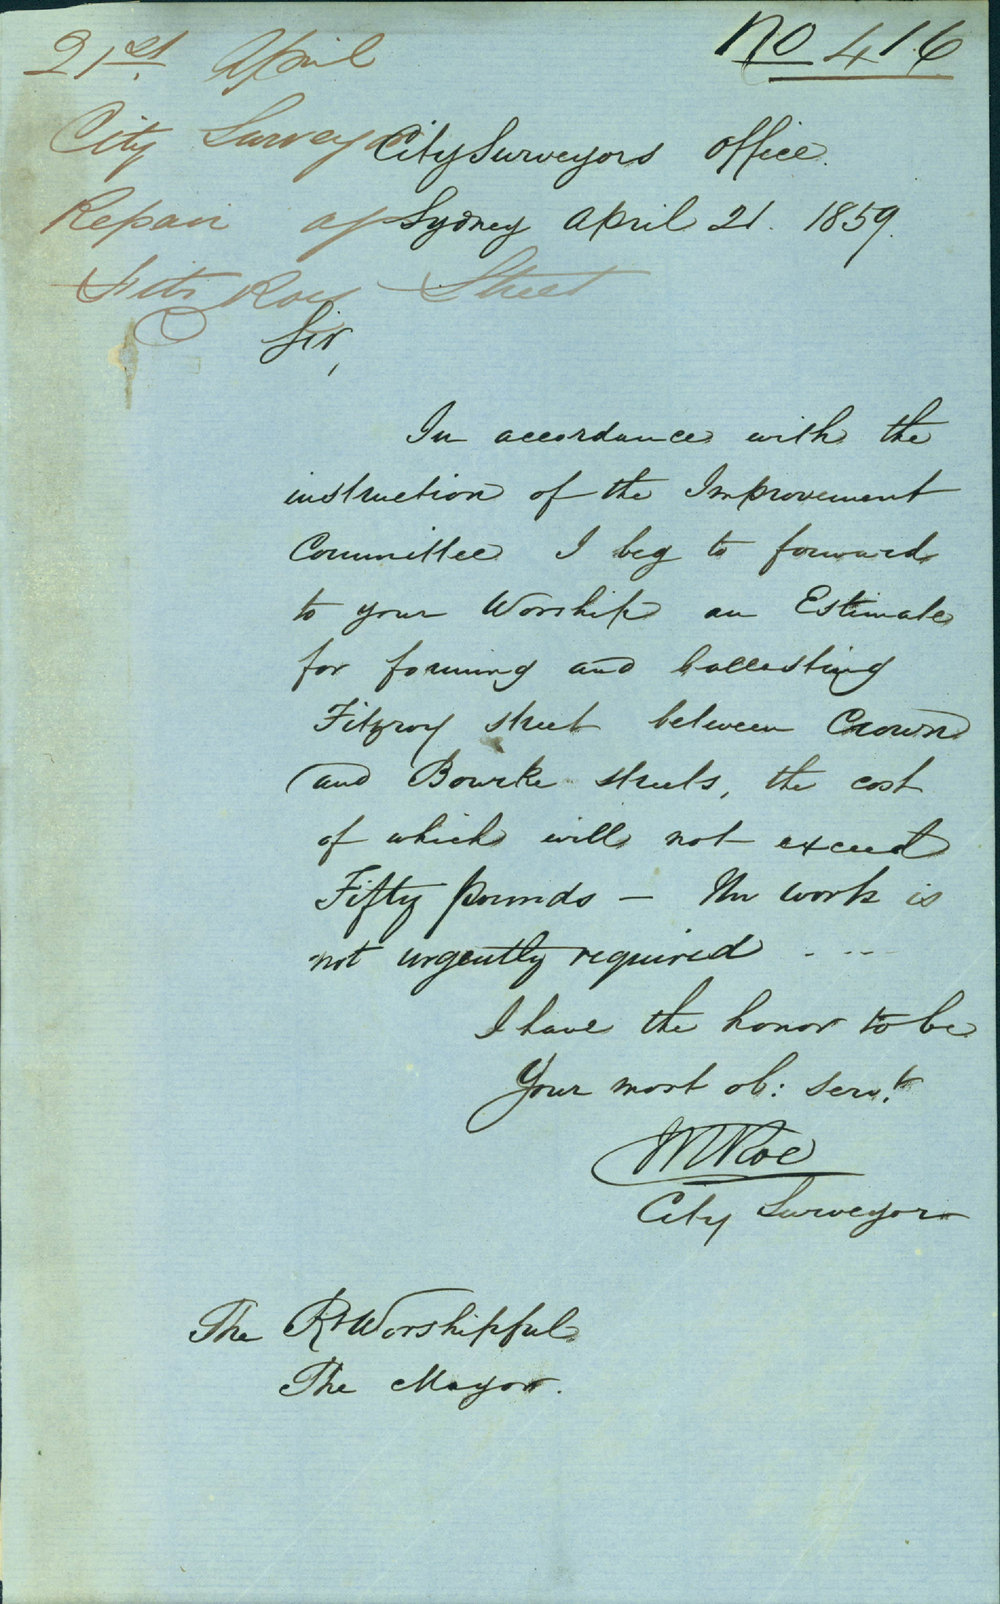 No 416
21st April
City Surveyor
Repair of
Fitz Roy Street
City Surveyors Office.
Sydney April 21. 1859.
Sir,
In accordance with the
instruction of the Improvement
Committee I beg to forward
to your Worship an Estimate
for forming and ballasting
Fitzroy street between Crown
and Bourke streets, the cost
of which will not exceed
Fifty pounds — The work is
not urgently required - - -
I have the honor to be
Your most ob: servt.
W Roe
City Surveyor
The Rt Worshipful
The Mayor.